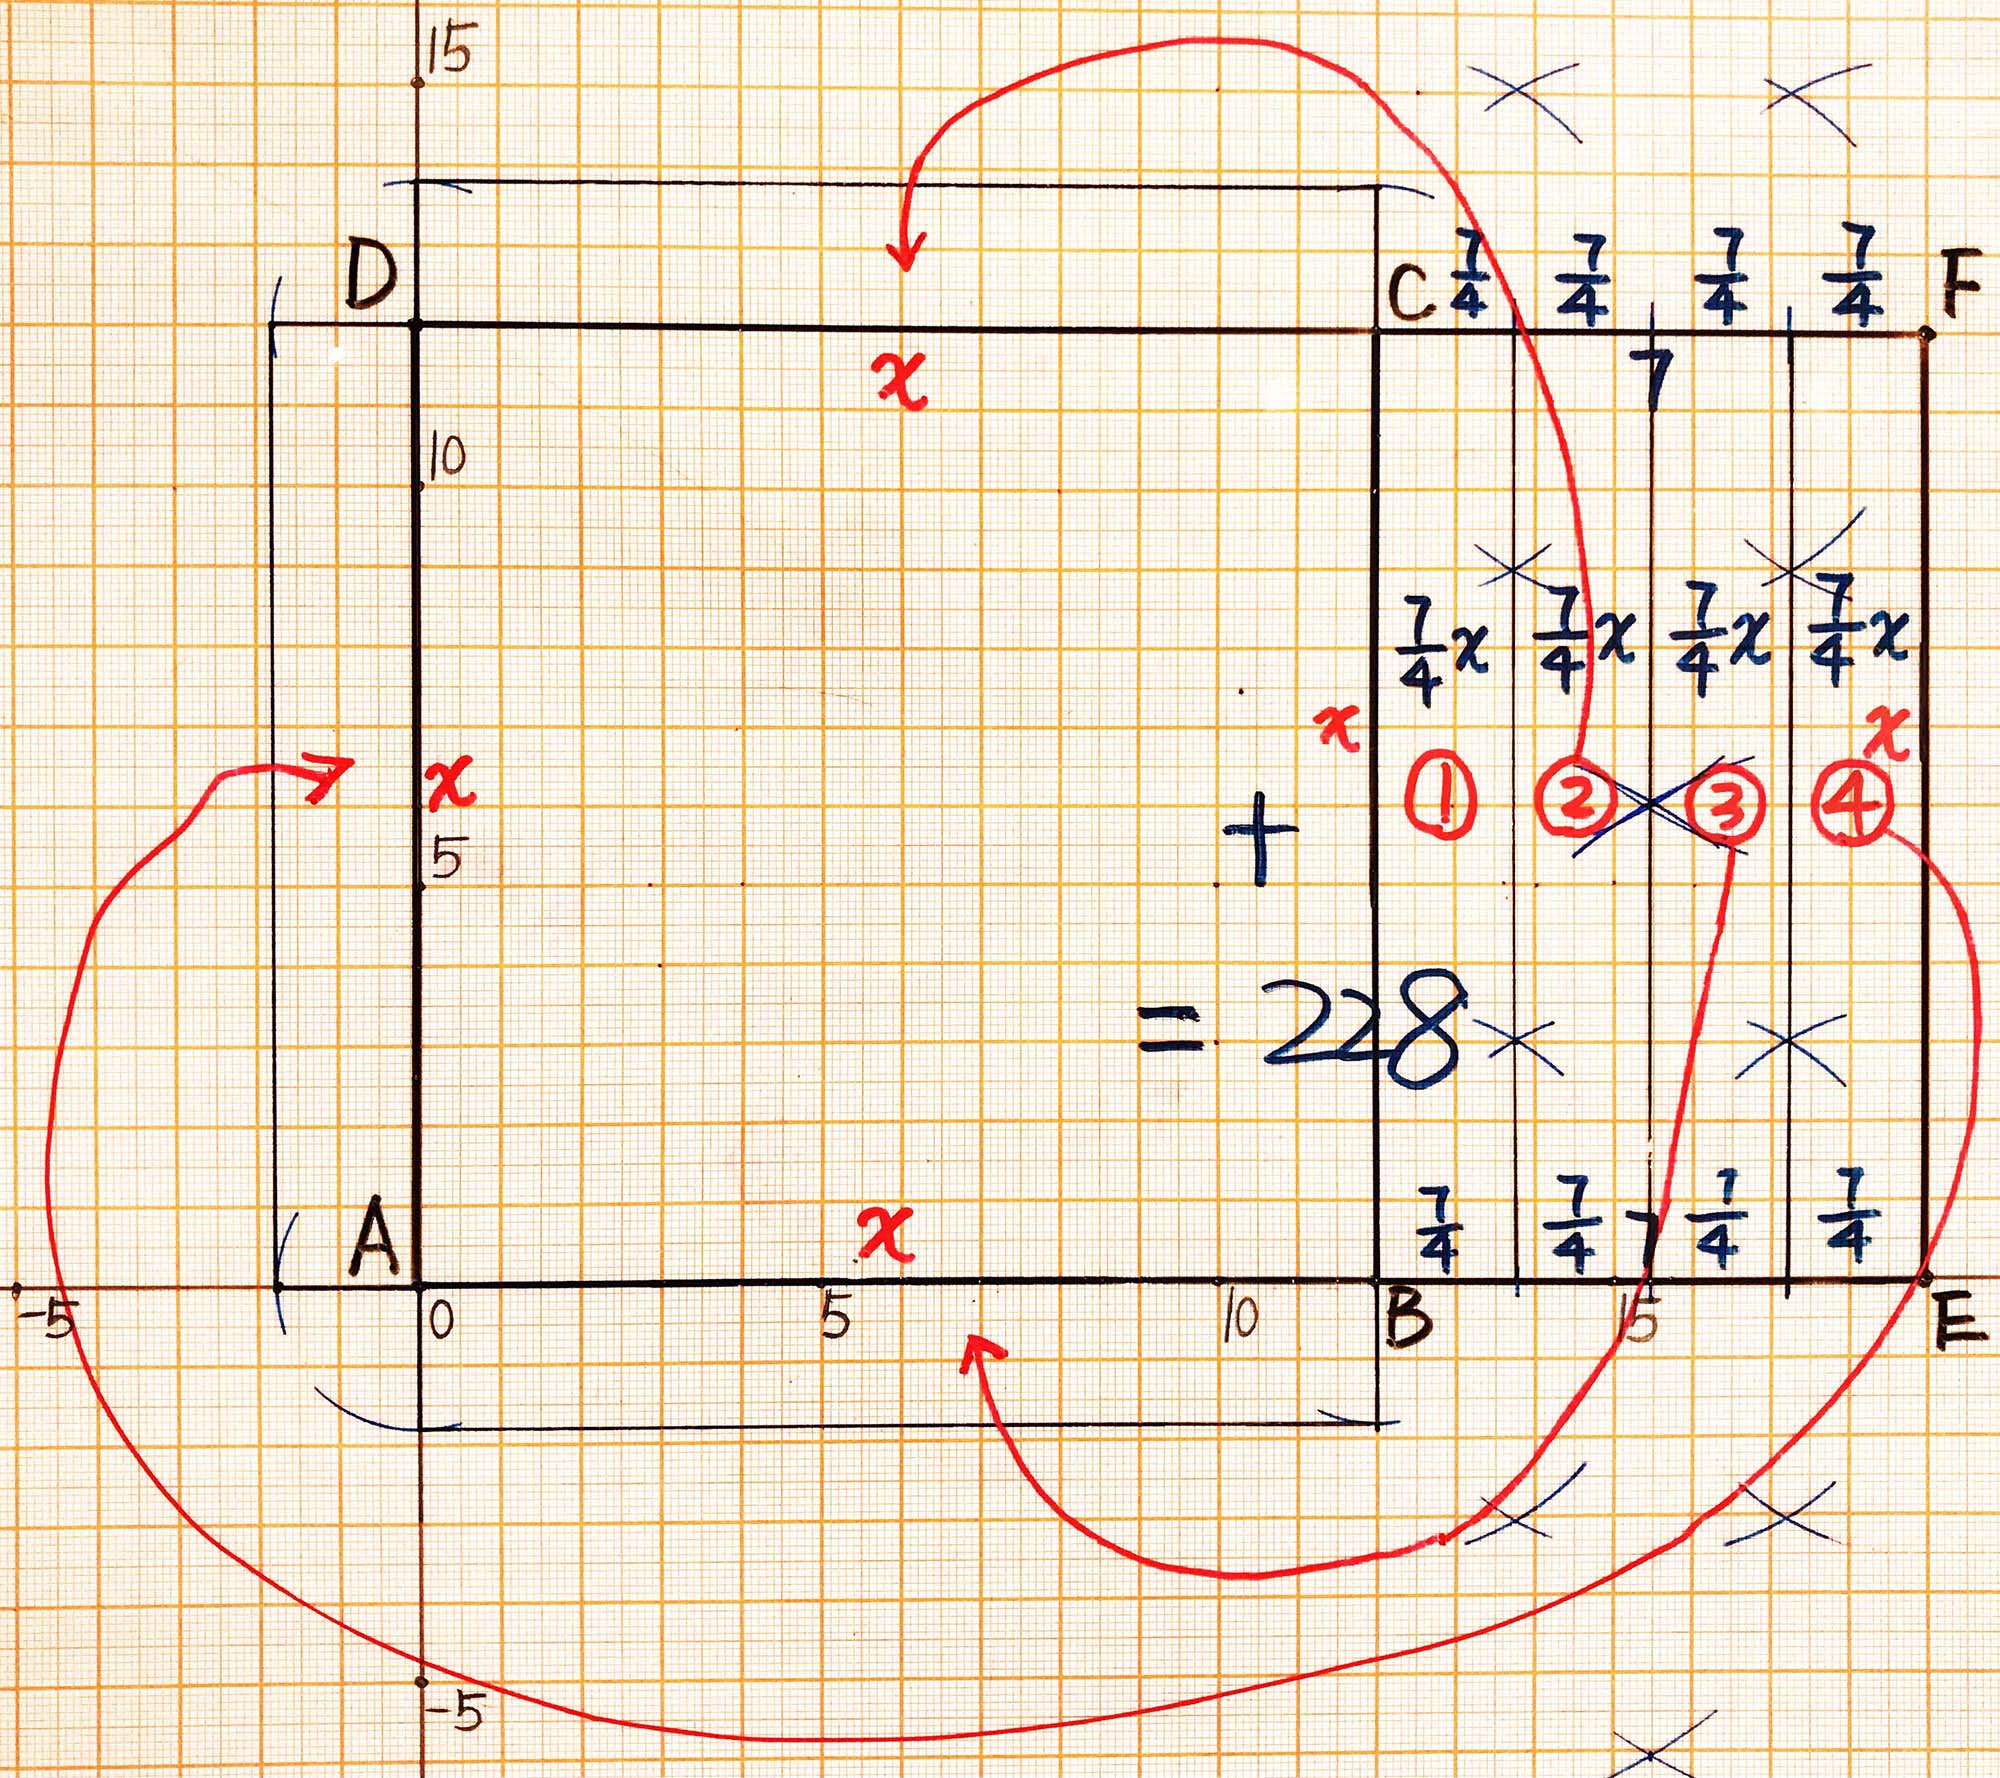 15
D C 7/4 7/4 7/4 7/4 F
x 7
10
7/4x 7/4x 7/4x 7/4x
x x
x + ① ② ③ ④
5
= 228
A x 7/4 7/4 7 7/4 7/4
-5 0 5 10 B 15 E
-5